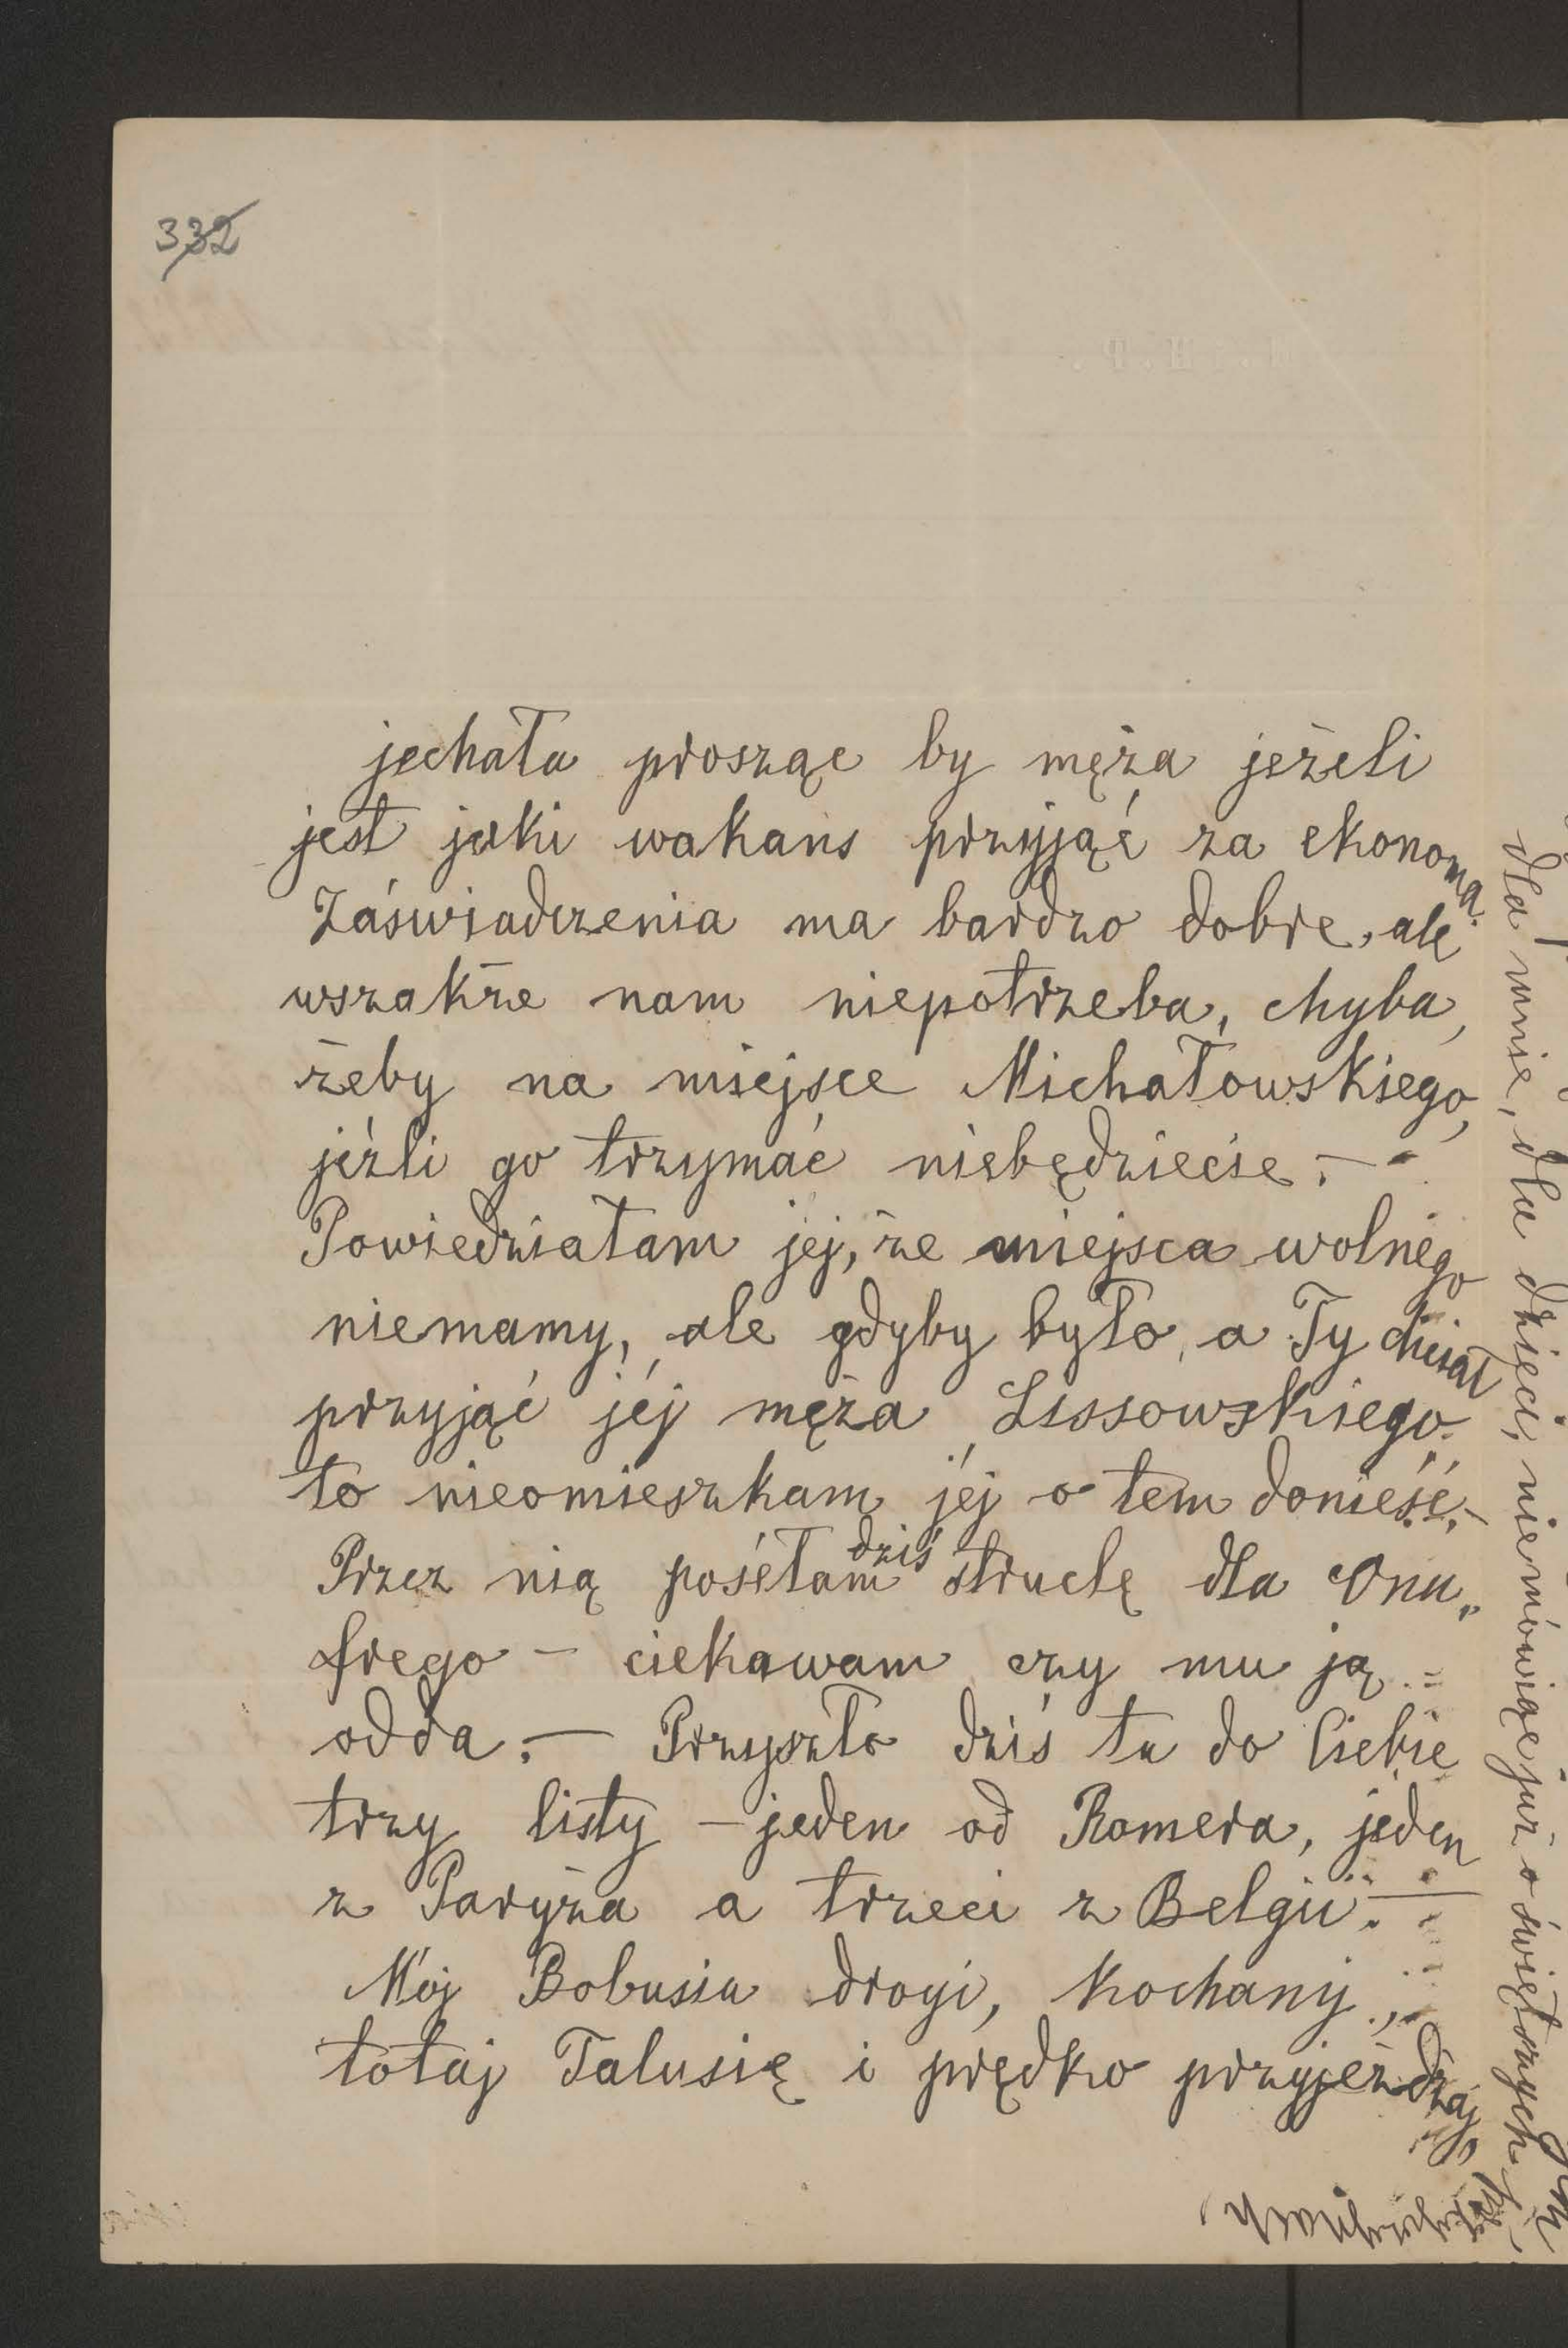 332
jechała prosząc by męża jeżeli
jest jaki wakans przyjąć za ekonoma.
Zaświadczenia ma bardzo dobre, ale
wszakże nam niepotrzeba, chyba,
żeby na miejsce Michałowskiego,
jeźli go trzymać niebędziecie. –
Powiedziałam jej, że miejsca wolnego
niemamy, ale gdyby było, a Ty chciał
przyjąć jéj męża Lissowskiego,
to nieomieszkam jéj o tem donieść. –
Przez nią posełam dziś struclę dla Onu„
frego – ciekawam czy mu ją
odda. – Przyszło dziś tu do Ciebie
trzy listy – jeden od Romera, jeden
z Paryża a trzeci z Belgii. –
Mój Bobusiu drogi, kochany,
totaj Talusię i prędko przyjeżdżaj,
dla mnie, dla dzieci, niemówiąc już o świętorzyckich